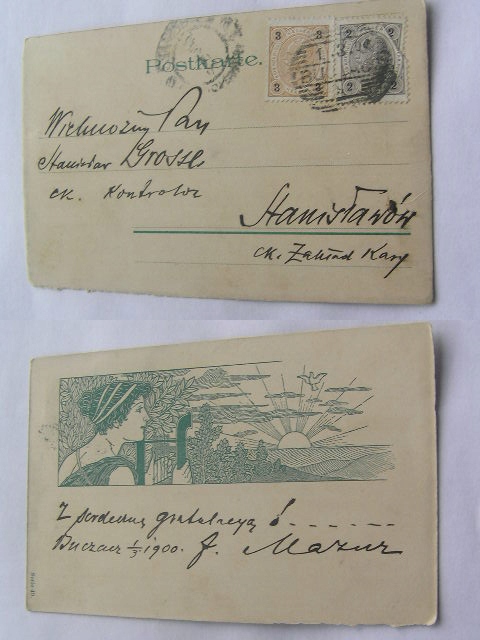 Postkarte.
3 3 2 2
3 3 2 2
Wielmożny Pan
Stanisław Grosse
ck. Kontrolor
Stanisławów
ck. Zakład Karny
Z serdeczną gratulacyą !......
Buczacz 1/3 1900. J. Mazur